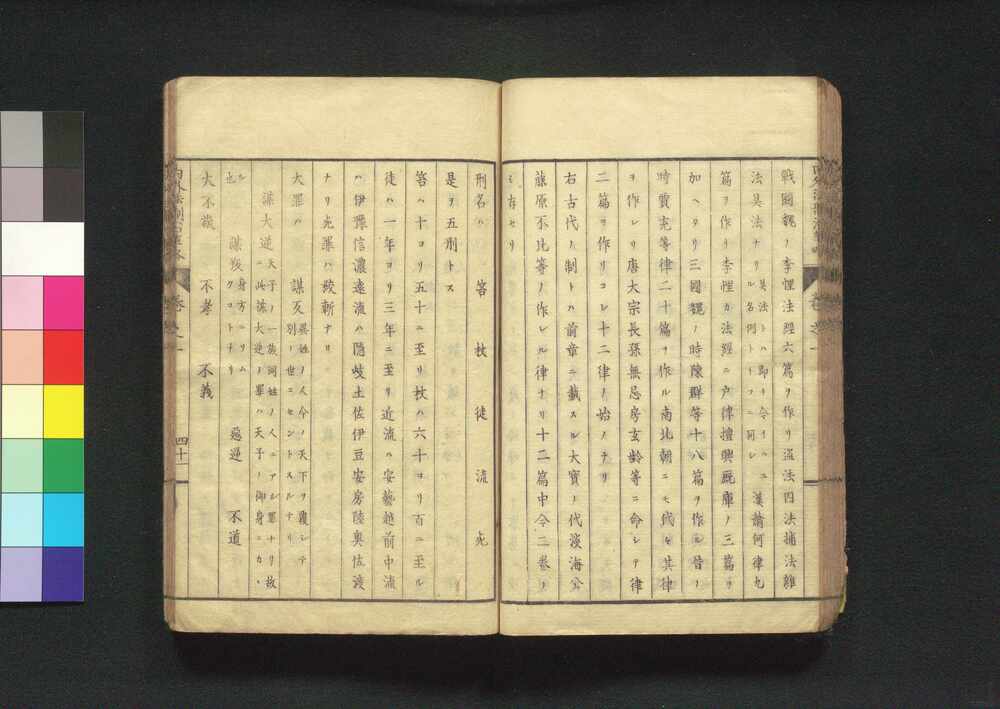 戰國魏ノ李悝法經六篇ヲ作リ盜法囚法捕法雜
法具法ナリ 具法トハ即チ今イハユル名例トイフニ同シ 漢蕭何律九
篇ヲ作リ李悝カ法經ニ戶律擅興厩庫ノ三篇ヲ
加ヘタリ三國魏ノ時陳群等十八篇ヲ作ル晉ノ
時賈充等律二十篇ヲ作ル南北朝ニモ代々其律
ヲ作レリ唐大宗長孫無忌房玄齡等ニ命シテ律
二篇ヲ作リコレ十二律ノ始ノナリ
右古代ノ制トハ前章ニ載スル大寶ノ代淡海公
藤原不比等ノ作レル律ナリ十二篇中今二卷ノ
ミ存セリ
刑名ハ 笞 杖 徒 流 死
是ヲ五刑トス
笞ハ十ヨリ五十ニ至リ杖ハ六十ヨリ百ニ至ル
徒ハ一年ヨリ三年ニ至リ近流ハ安藝越前中流
ハ伊豫信濃遠流ハ隱岐土佐伊豆安房陸奥佐渡
ナリ死罪ハ絞斬ナリ
大罪ハ 謀反 異姓ノ人今ノ天下ヲ覆シテ
別ノ世ニセントスルナリ
謀大逆 天子ノ一族同姓ノ人ニアル罪ナリ故
ニ此謀大逆ノ罪ハ天子ノ御身ニカヽ
ル
也 謀叛 身方ニソム
クコトナリ 惡逆 不道
大不敬 不孝 不義
卷之一
四十一